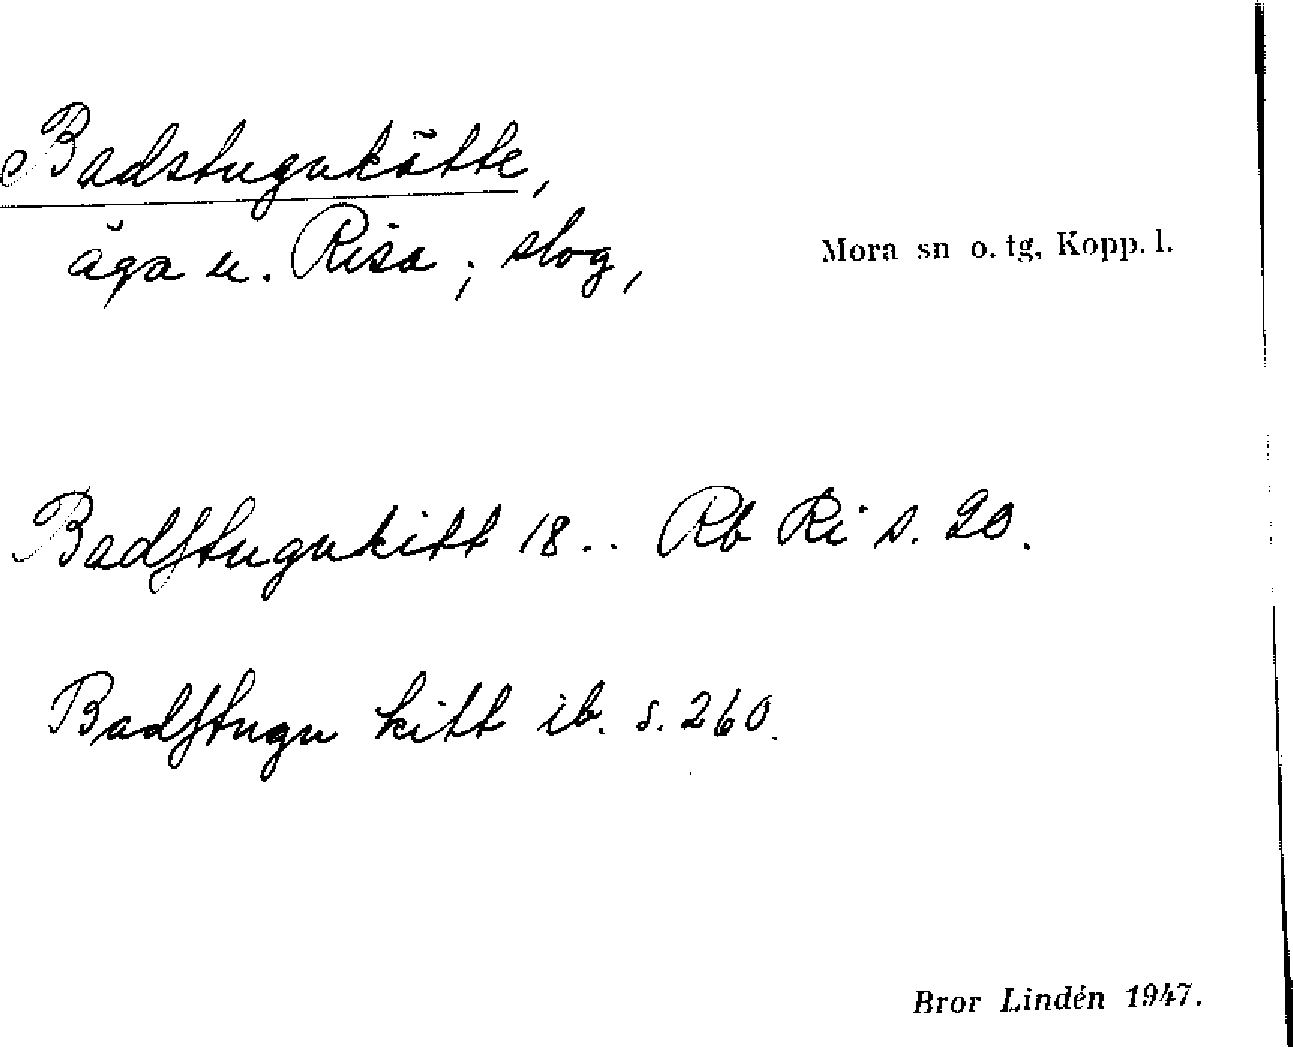 Badstugukätte,
äga u. Risa; slog,
Mora sn o. tg, Kopp. l.
Badstugukitt 18.. Rb Ri s. 20.
Badstugu kitt ib. s. 260.
Bror Lindén 1947.